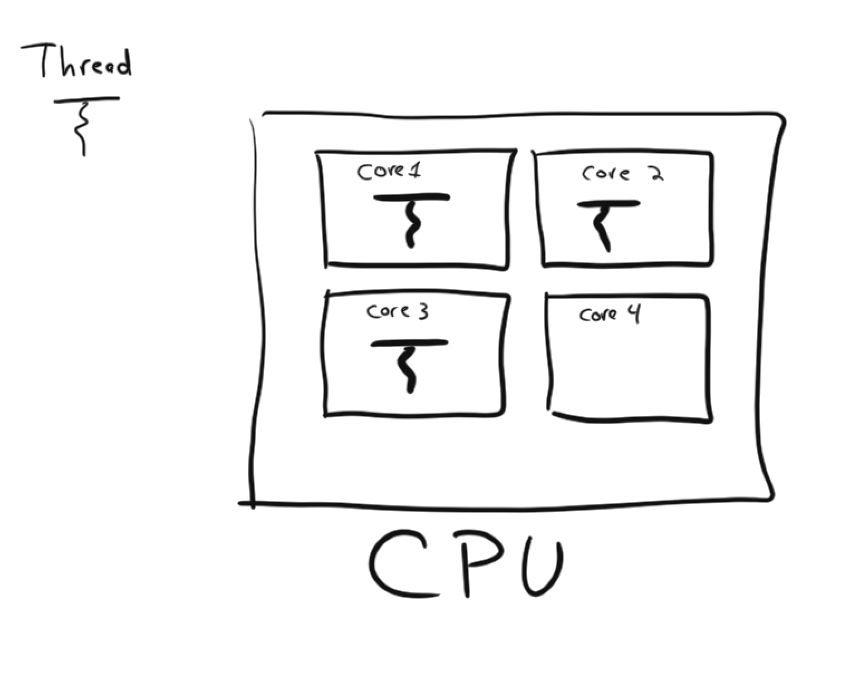 Thread
Core 1
Core 2
Core 3
Core 4
CPU